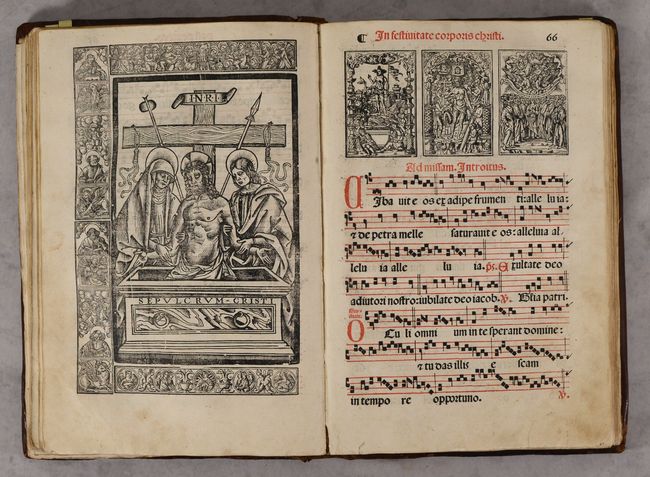 INRI
SEPVLCRVM·CRISTI
¶ In festiuitate corporis christi. 66
Ad missam. Introitus.
Ciba uit e os ex adipe frumen ti: alle lu ia:
& de petra melle saturauit e os: alleluia al
lelu ia alle lu ia. ps. Exultate deo
adiutori nostro: iubilate deo iacob. V. Glia patri.
O Cu li omni um in te sperant domine:
& tu das illis e scam
in tempo re opportuno. V.